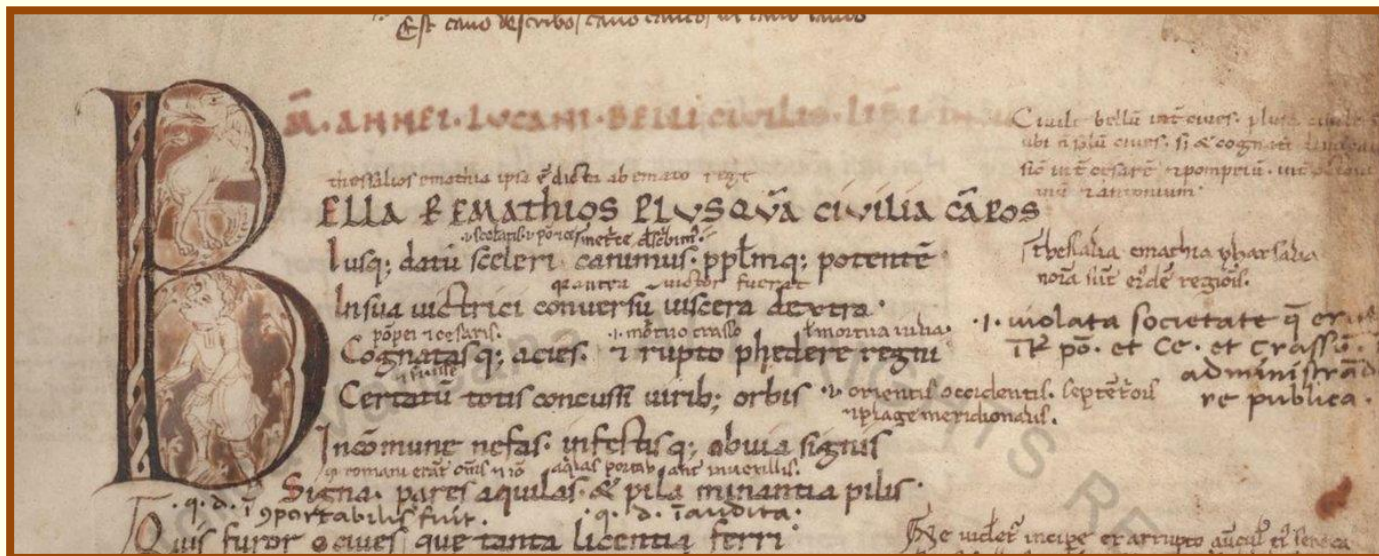 Est cavo describo, cavo cauco, in cavo
M. ANNEI. LUCANI. BELLI CIVILIS. LIB. I.
thessalios emathia ipsa ē dicta ab emato rege
BELLA P EMATHIOS PLUSQUĀ CIVILIA CĀPOS
Iusq; datū sceleri canimus. pplmq; potentē
qi antea victor fuerat
In sua victrici conversū viscera dextra.
pōpei & cesaris. .i. mortuo crasso ł mortua iulia.
Cognatasq; acies. & rupto phedere regni
Certatū totis concussi virib; orbis
orientis occidentis. septētrōis
& plage meridionalis.
In cōmune nefas. infestisq; obvia signis
romani erāt aqilas portabant in vexillis.
Signa. pares aquilas. & pila minantia pilis.
.q. d. ī portabilis fuit. .q. d. īaudita.
Quis furor o cives que tanta licentia ferri
Civile bellū int cives. plus
ubi n solū cives. si & cognati
int cesarē & pompeiū. int
& antonium.
thessalia emathia pharsalia
noīa sūt eidē regiōis.
.i. violata societate q̄ erat
īt pō. et ce. et crassū.
administrād
re publica.
Ne videt incipe ex arrupto seneca